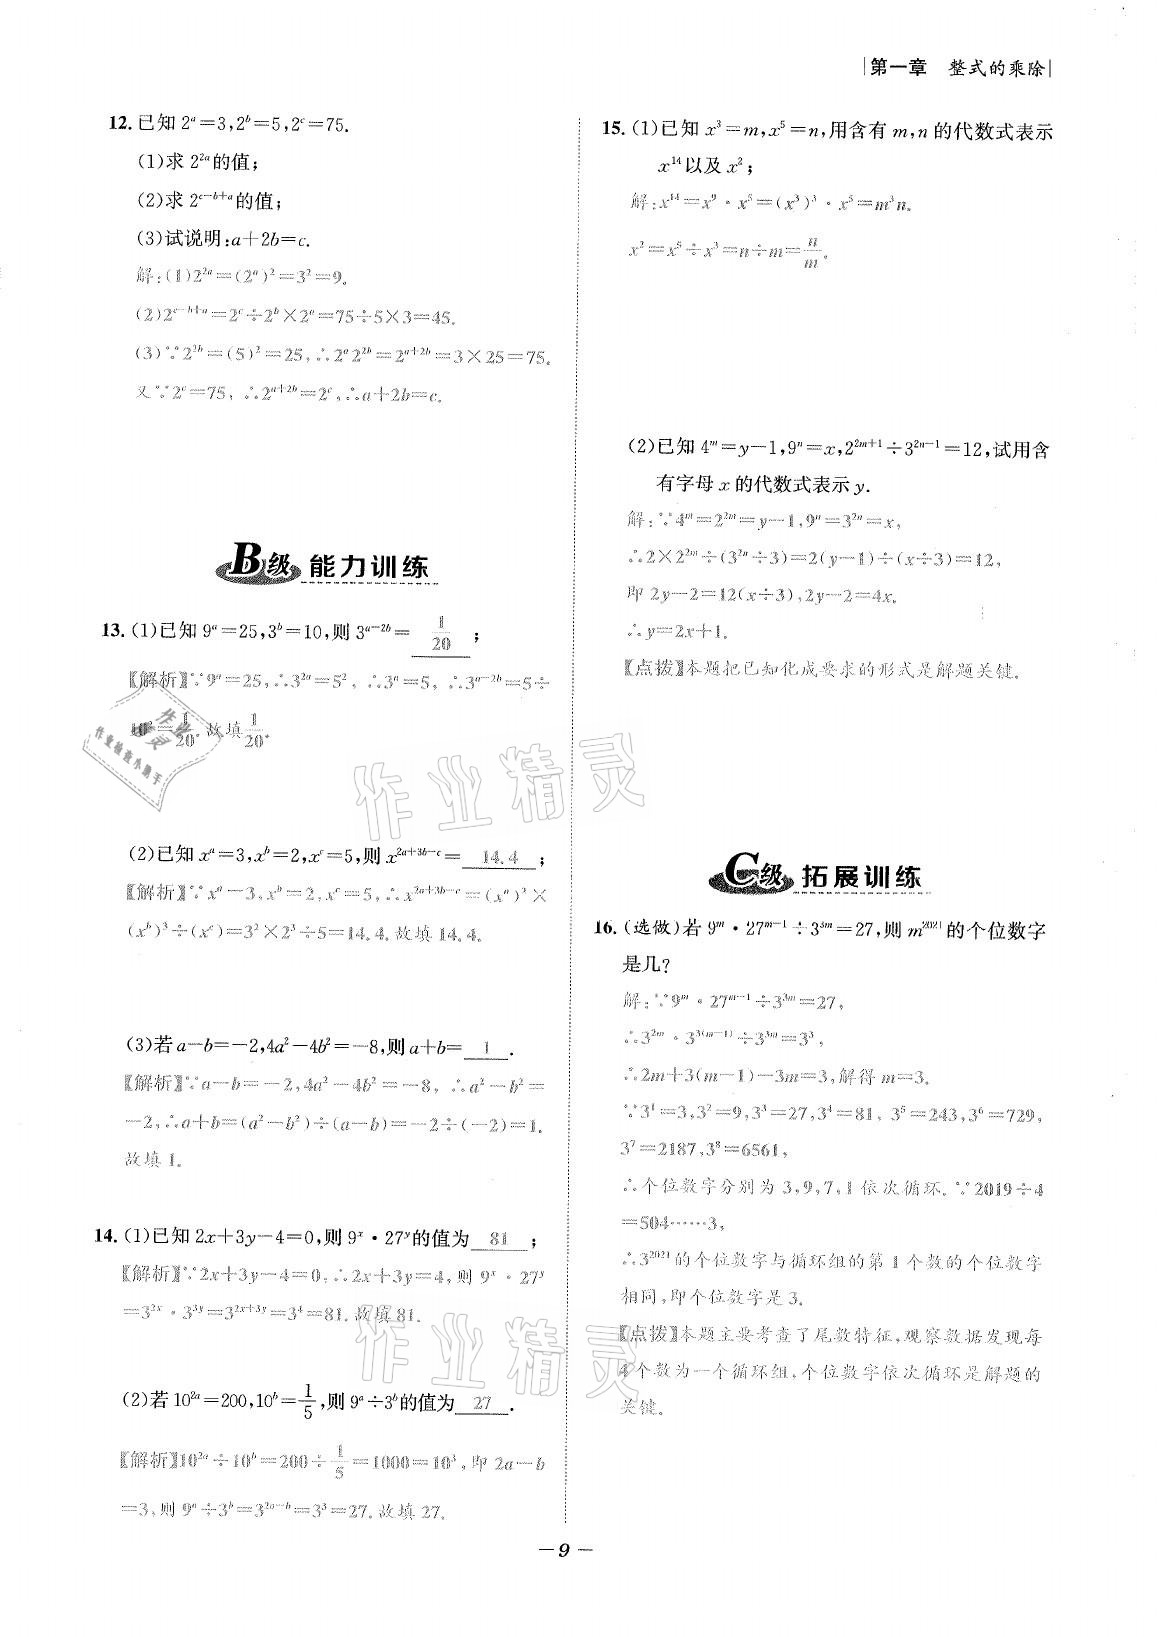 |第一章 整式的乘除|
12.已知 2ᵃ=3,2ᵇ=5,2ᶜ=75.
(1)求 2²ᵃ的值;
(2)求 2ᶜ⁻ᵇ⁺ᵃ的值;
(3)试说明:a+2b=c.
解:(1)2²ᵃ=(2ᵃ)²=3²=9。
(2)2ᶜ⁻ᵇ⁺ᵃ=2ᶜ÷2ᵇ×2ᵃ=75÷5×3=45。
(3)∵2²ᵇ=(5)²=25,∴2ᵃ2²ᵇ=2ᵃ⁺²ᵇ=3×25=75。
又∵2ᶜ=75,∴2ᵃ⁺²ᵇ=2ᶜ,∴a+2b=c。
B级 能力训练
13.(1)已知 9ᵃ=25,3ᵇ=10,则 3ᵃ⁻²ᵇ= 1/20 ;
【解析】∵9ᵃ=25,∴3²ᵃ=5²,∴3ᵃ=5,∴3ᵃ⁻²ᵇ=5÷
10²=1/20。故填1/20。
(2)已知 xᵃ=3,xᵇ=2,xᶜ=5,则 x²ᵃ⁺³ᵇ⁻ᶜ= 14.4 ;
【解析】∵xᵃ=3,xᵇ=2,xᶜ=5,∴x²ᵃ⁺³ᵇ⁻ᶜ=(xᵃ)²×
(xᵇ)³÷(xᶜ)=3²×2³÷5=14.4。故填 14.4。
(3)若 a-b=-2,4a²-4b²=-8,则 a+b= 1 .
【解析】∵a-b=-2,4a²-4b²=-8,∴a²-b²=
-2,∴a+b=(a²-b²)÷(a-b)=-2÷(-2)=1。
故填 1。
14.(1)已知 2x+3y-4=0,则 9ˣ·27ʸ的值为 81 ;
【解析】∵2x+3y-4=0,∴2x+3y=4,则 9ˣ·27ʸ
=3²ˣ·3³ʸ=3²ˣ⁺³ʸ=3⁴=81。故填 81。
(2)若 10²ᵃ=200,10ᵇ=1/5,则 9ᵃ÷3ᵇ的值为 27 .
【解析】10²ᵃ÷10ᵇ=200÷1/5=1000=10³,即 2a-b
=3,则 9ᵃ÷3ᵇ=3²ᵃ⁻ᵇ=3³=27。故填 27。
15.(1)已知 x³=m,x⁵=n,用含有 m,n 的代数式表示
x¹⁴以及 x²;
解:x¹⁴=x⁹·x⁵=(x³)³·x⁵=m³n。
x²=x⁵÷x³=n÷m=n/m。
(2)已知 4ᵐ=y-1,9ⁿ=x,2²ᵐ⁺¹÷3²ⁿ⁻¹=12,试用含
有字母 x 的代数式表示 y.
解:∵4ᵐ=2²ᵐ=y-1,9ⁿ=3²ⁿ=x,
∴2×2²ᵐ÷(3²ⁿ÷3)=2(y-1)÷(x÷3)=12,
即 2y-2=12(x÷3),2y-2=4x。
∴y=2x+1。
【点拨】本题把已知化成要求的形式是解题关键。
C级 拓展训练
16.(选做)若 9ᵐ·27ᵐ⁻¹÷3³ᵐ=27,则 m²⁰²¹的个位数字
是几?
解:∵9ᵐ·27ᵐ⁻¹÷3³ᵐ=27,
∴3²ᵐ·3³⁽ᵐ⁻¹⁾÷3³ᵐ=3³,
∴2m+3(m-1)-3m=3,解得 m=3。
∵3¹=3,3²=9,3³=27,3⁴=81,3⁵=243,3⁶=729,
3⁷=2187,3⁸=6561,
∴个位数字分别为 3,9,7,1 依次循环。∵2019÷4
=504……3,
∴3²⁰²¹的个位数字与循环组的第 1 个数的个位数字
相同,即个位数字是 3。
【点拨】本题主要考查了尾数特征,观察数据发现每
4个数为一个循环组,个位数字依次循环是解题的
关键。
作业精灵
作业精灵
作业精灵
作业检查小助手
— 9 —